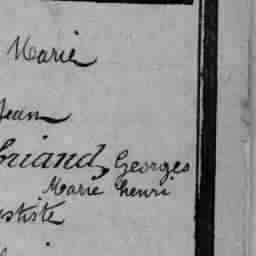 Marie
Jean
briand, Georges
Marie henri